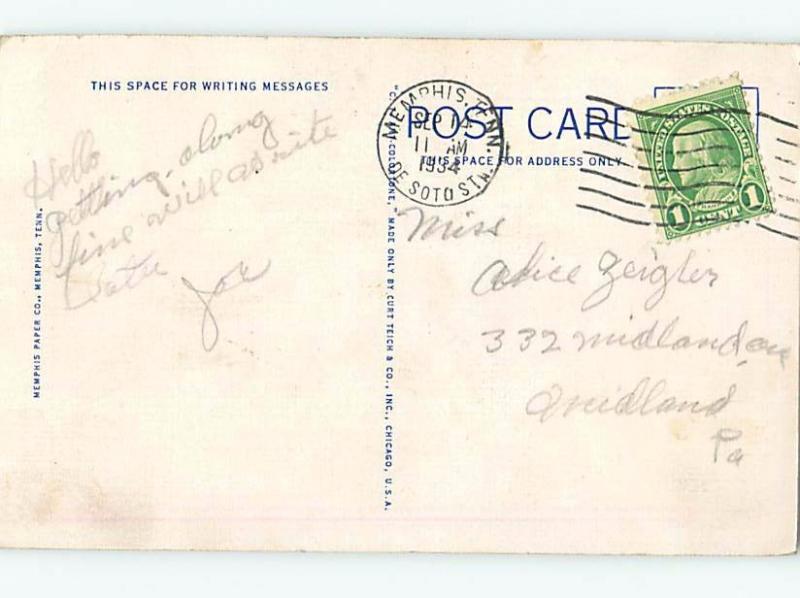 THIS SPACE FOR WRITING MESSAGES
Hello
getting along
fine will write
Later
Joe
MEMPHIS PAPER CO., MEMPHIS, TENN.
"C.T. COLORTONE," MADE ONLY BY CURT TEICH & CO., INC., CHICAGO, U.S.A.
POST CARD
THIS SPACE FOR ADDRESS ONLY
MEMPHIS, TENN.
SEP 14
11 AM
1934
DE SOTO STA.
UNITED STATES POSTAGE
1 CENT 1
Miss
Alice Zeigler
332 midland ave
midland
Pa